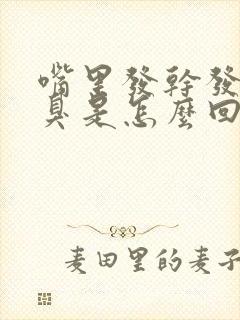 嘴里發幹發
臭是怎麼回
麦田里的麦子